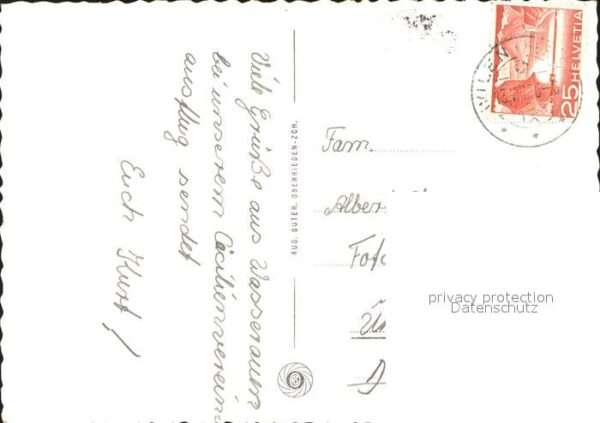 Viele Grüße aus Wasserauen
bei unserem Cäcilienverein
ausflug sendet
Euch Kurt!
AUG. SUTER, OBERRIEDEN-ZCH.
Fam.
Alber
Fot
privacy protection
Datenschutz
25 HELVETIA